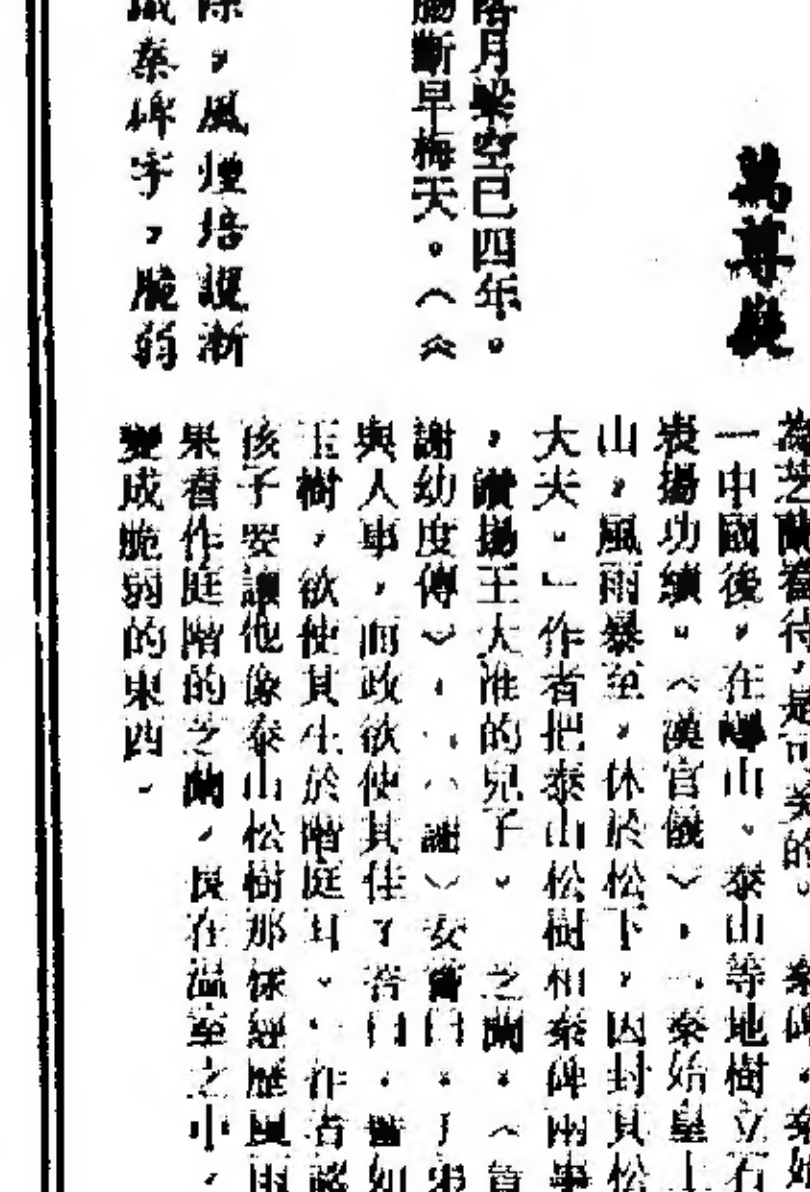 尊
落月梁空已四年。
腸斷早梅天。（
，風煙培護漸
秦碑字，脆弱
為芝蘭看待，是可美的。 秦碑，秦始
一中國後，在嶧山、泰山等地樹立石
表揚功績。〈漢官儀〉，「秦始皇上
山，風雨暴至，休於松下，因封其松
大夫。」作者把泰山松樹和秦碑兩事
，讚揚王大准的兒子。 芝蘭，〈晉
謝幼度傳〉，「（謝）安嘗曰，子弟
與人事，而政欲使其佳？答曰，譬如
玉樹，欲使其生於階庭耳。」作者認
孩子要讓他像泰山松樹那樣經歷風雨
果看作庭階的芝蘭，長在溫室之中，
變成脆弱的東西。